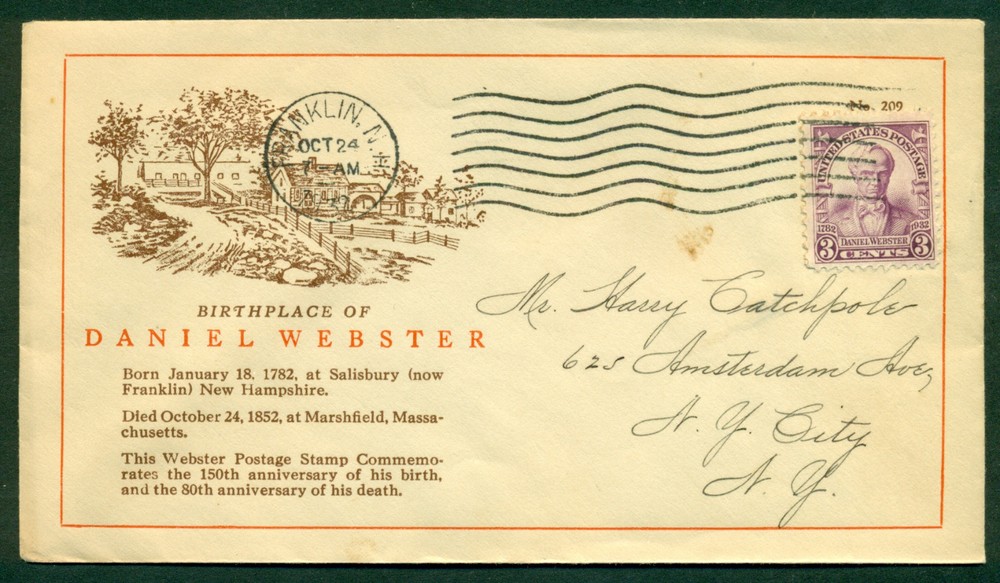 FRANKLIN, N.H.
OCT 24
7 AM
1932
No. 209
UNITED STATES POSTAGE
1782 1932
DANIEL WEBSTER
3 CENTS 3
BIRTHPLACE OF
DANIEL WEBSTER
Born January 18, 1782, at Salisbury (now
Franklin) New Hampshire.
Died October 24, 1852, at Marshfield, Massa-
chusetts.
This Webster Postage Stamp Commemo-
rates the 150th anniversary of his birth,
and the 80th anniversary of his death.
Mr. Harry Catchpole
625 Amsterdam Ave,
N. Y. City
N. Y.